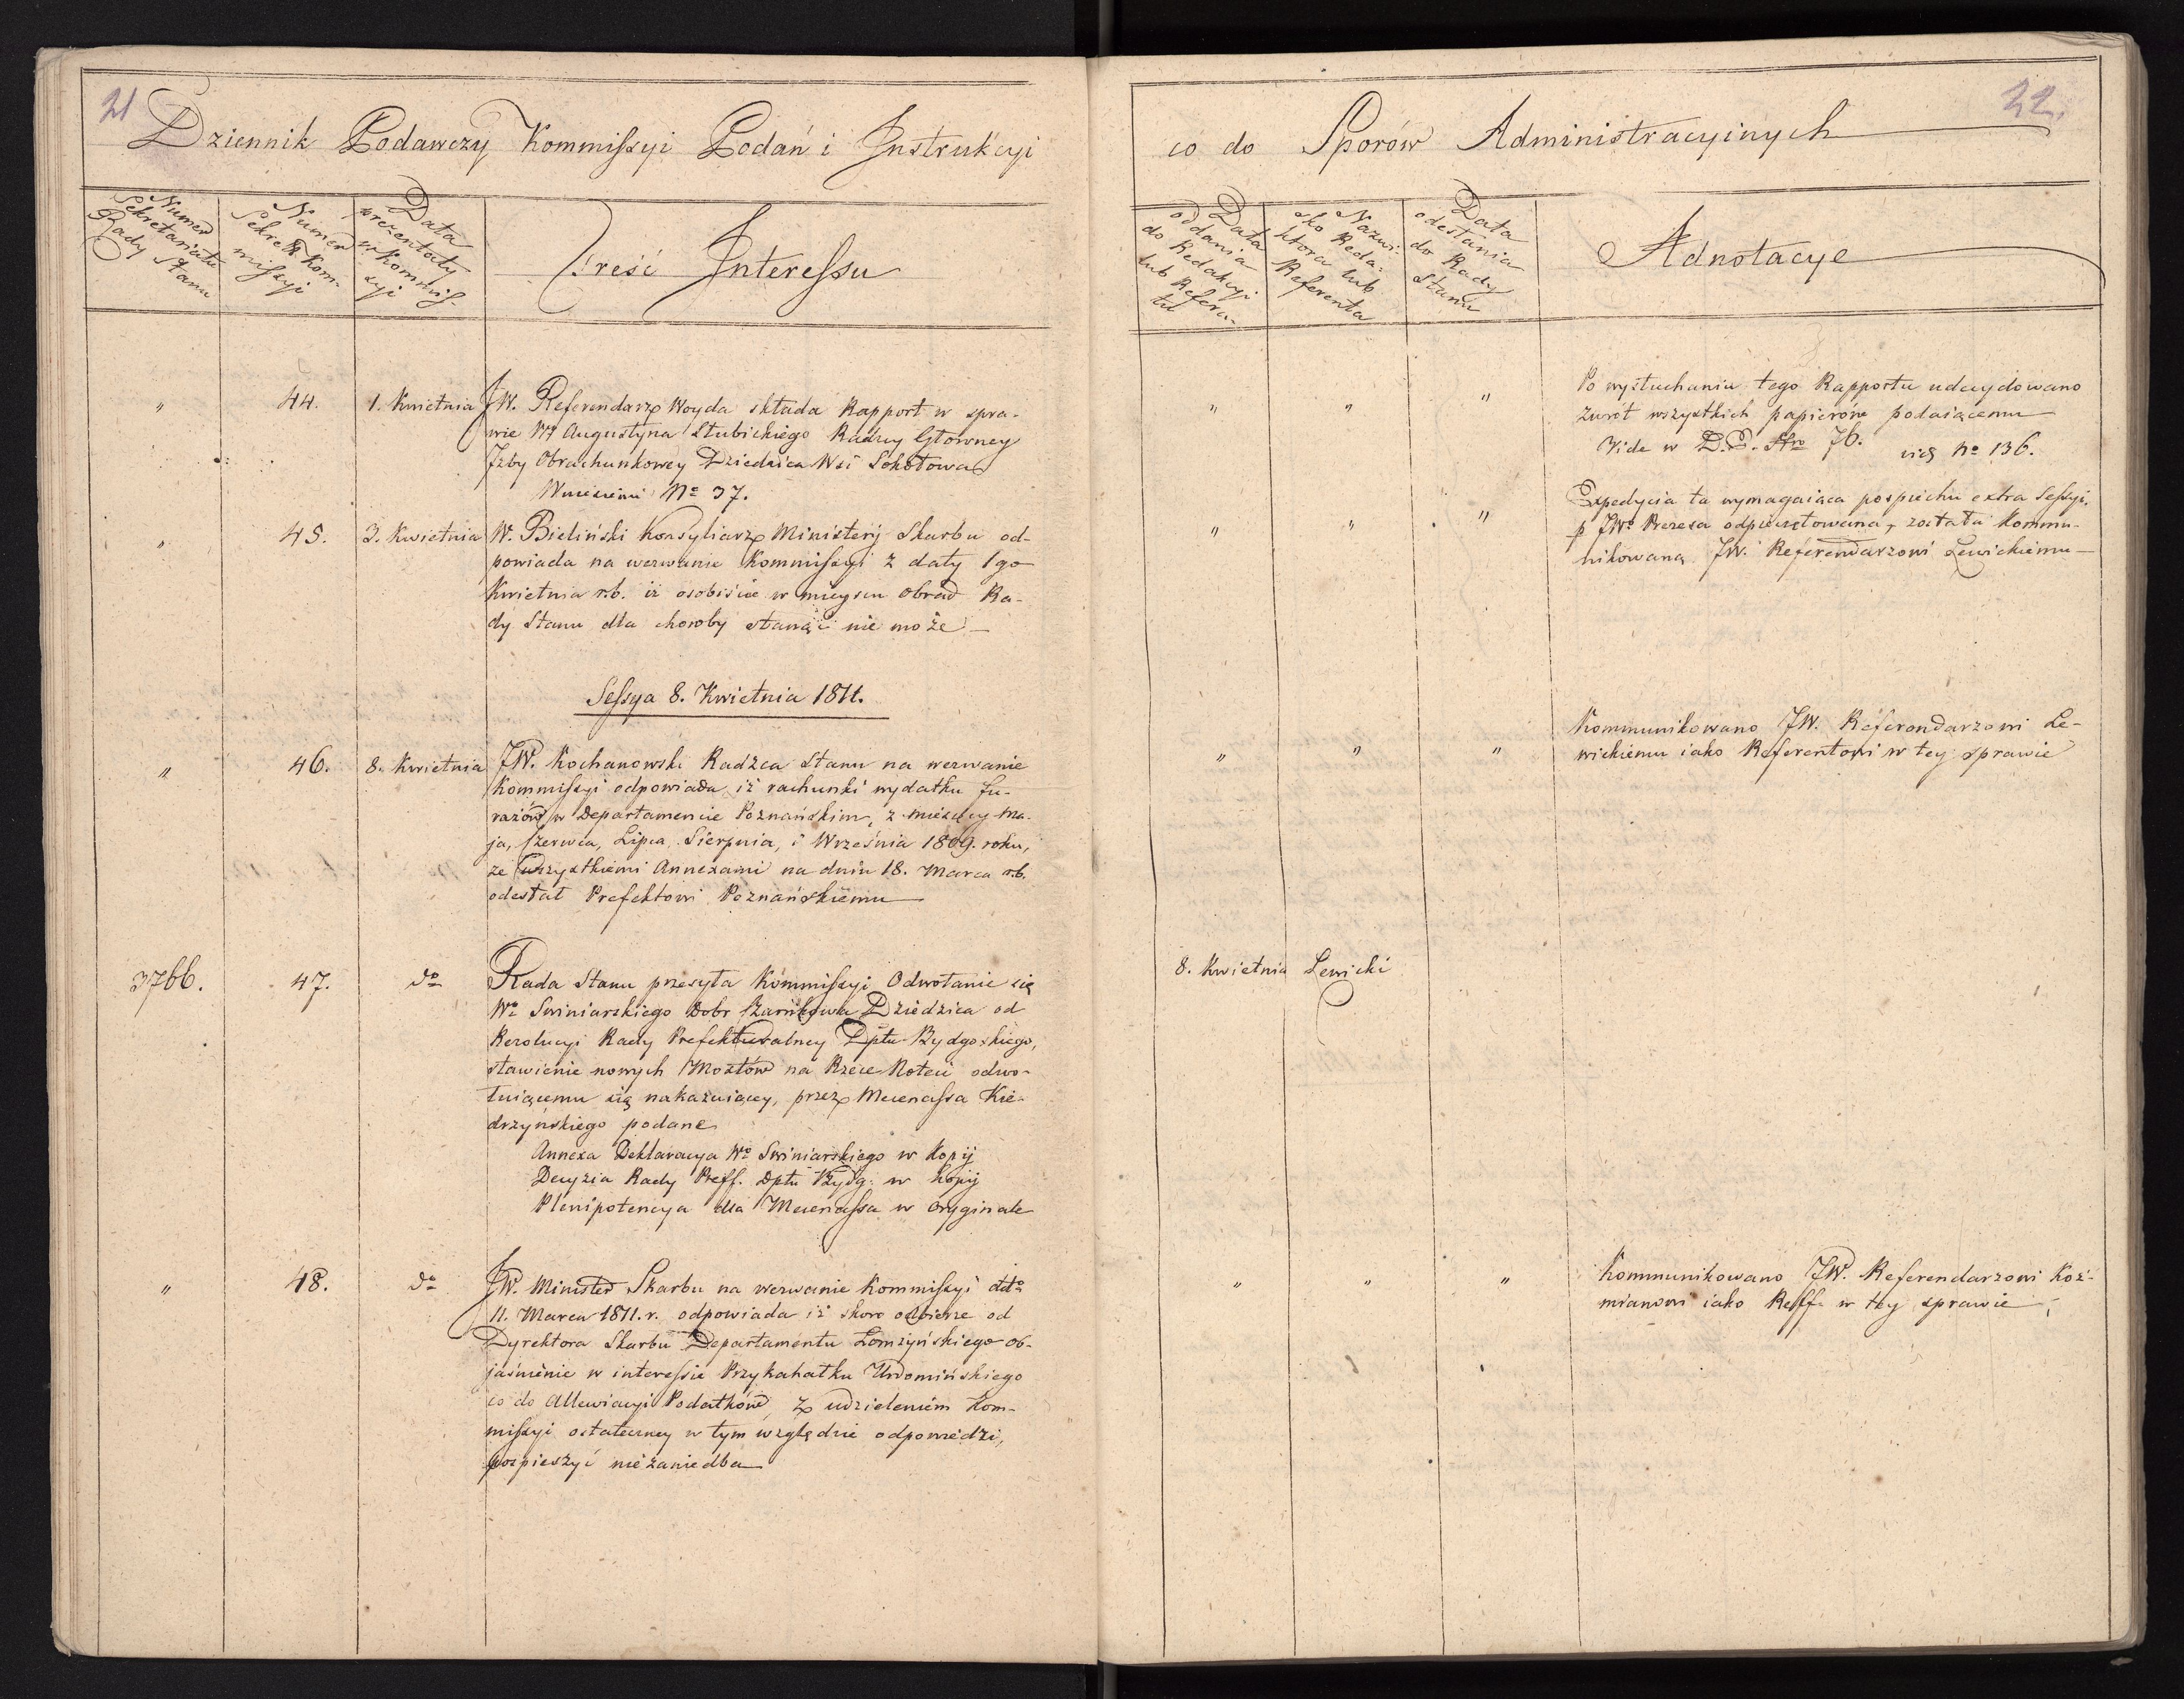 21
Dziennik Podawczy Kommissyi Podań i Instrukcyi
Numer Sekretariatu Rady Stanu
Numer Sekret: Kommissyi
Data prezentaty w Kommissyi
Treść Interessu
" 44. 1. Kwietnia JW. Referendarz Woyda składa Rapport w spra-
wie Wº Augustyna Słubickiego Radzcy Głowney
Jzby Obrachunkowey Dziedzica Wsi Sokołowa
Wniesieniu Nº 37.
" 45. 3. Kwietnia W. Bieliński Konsyliarz Ministerÿ Skarbu od-
powiada na wezwanie Kommissyi z daty 1go
Kwietnia r.b. iż osobiście w mieyscu obrad Ra-
dy Stanu dla choroby stawąć nie może —
Sessya 8. Kwietnia 1811.
" 46. 8. Kwietnia JW. Kochanowski Radzca Stanu na wezwanie
Kommissyi odpowiada, iż rachunki wydatku fu-
rażów w Departamencie Poznańskim, z miesięcy Ma-
ja, Czerwca, Lipca, Sierpnia, i Września 1809. roku,
ze wszystkiemi Annexami na dniu 18. Marca r.b.
odesłał Prefektowi Poznańskiemu —
3766. 47. dº Rada Stanu przesyła Kommissyi Odwołanie się
Wº Swiniarskiego Dobr Czarnkowa Dziedzica od
Rezolucyi Rady Prefekturalney Dptu Bydgoskiego,
stawienie nowych Mostów na Rzece Noteci odwo-
łuiącemu się nakazuiącey, przez Mecenassa Kie-
drzyńskiego podane
Annexa Deklaracya Wº Swiniarskiego w Kopij
Decyzia Rady Preff. Dptu Bydg: w Kopij
Plenipotencya dla Mecenassa w Oryginale
" 48. dº JW. Minister Skarbu na wezwanie Kommissyi ddº
11. Marca 1811. r. odpowiada iż skoro odbierze od
Dyrektora Skarbu Departamentu Łomżyńskiego ob-
jaśnienie w interessie Przykahałku Urdomińskiego
co do Allewiacyi Podatków, z udzieleniem Kom-
missyi ostateczney w tym względzie odpowiedzi,
pospieszyć niezaniedba —
22.
co do Sporów Administracyinych
Data oddania do Redakcyi lub Referatu
Nazwisko Redaktora lub Referenta
Data odesłania do Rady Stanu
Adnotacye
" " " Po wysłuchaniu tego Rapportu udecydowano
zwrót wszystkich papierów podaiącemu —
Vide w D.P. Stro 76. vid Nº 136.
" " " Expedycia ta wymagaiąca pospiechu extra Sessyi,
p JWº Prezesa odpieczętowana, została Kommu-
nikowaną JW. Referendarzowi Lewickiemu —
" " " Kommunikowano JW. Referendarzowi Le-
wickiemu iako Referentowi w tey sprawie
8. Kwietnia Lewicki
" " " Kommunikowano JW. Referendarzowi Koź-
mianowi iako Reff. w tey sprawie